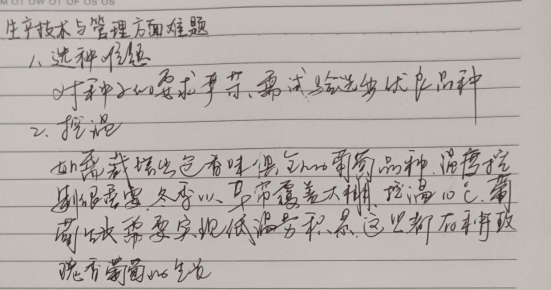 生产技术与管理方面难题
1、选种难题
对种子的要求严苛、需试验选出优良品种
2、控温
如需栽培出色香味俱全的葡萄品种,温度控
制很重要,冬季以草带覆盖大棚,控温10℃,葡
萄生长需要实现低温劳积累,这些都有利于玫
瑰香葡萄的生长